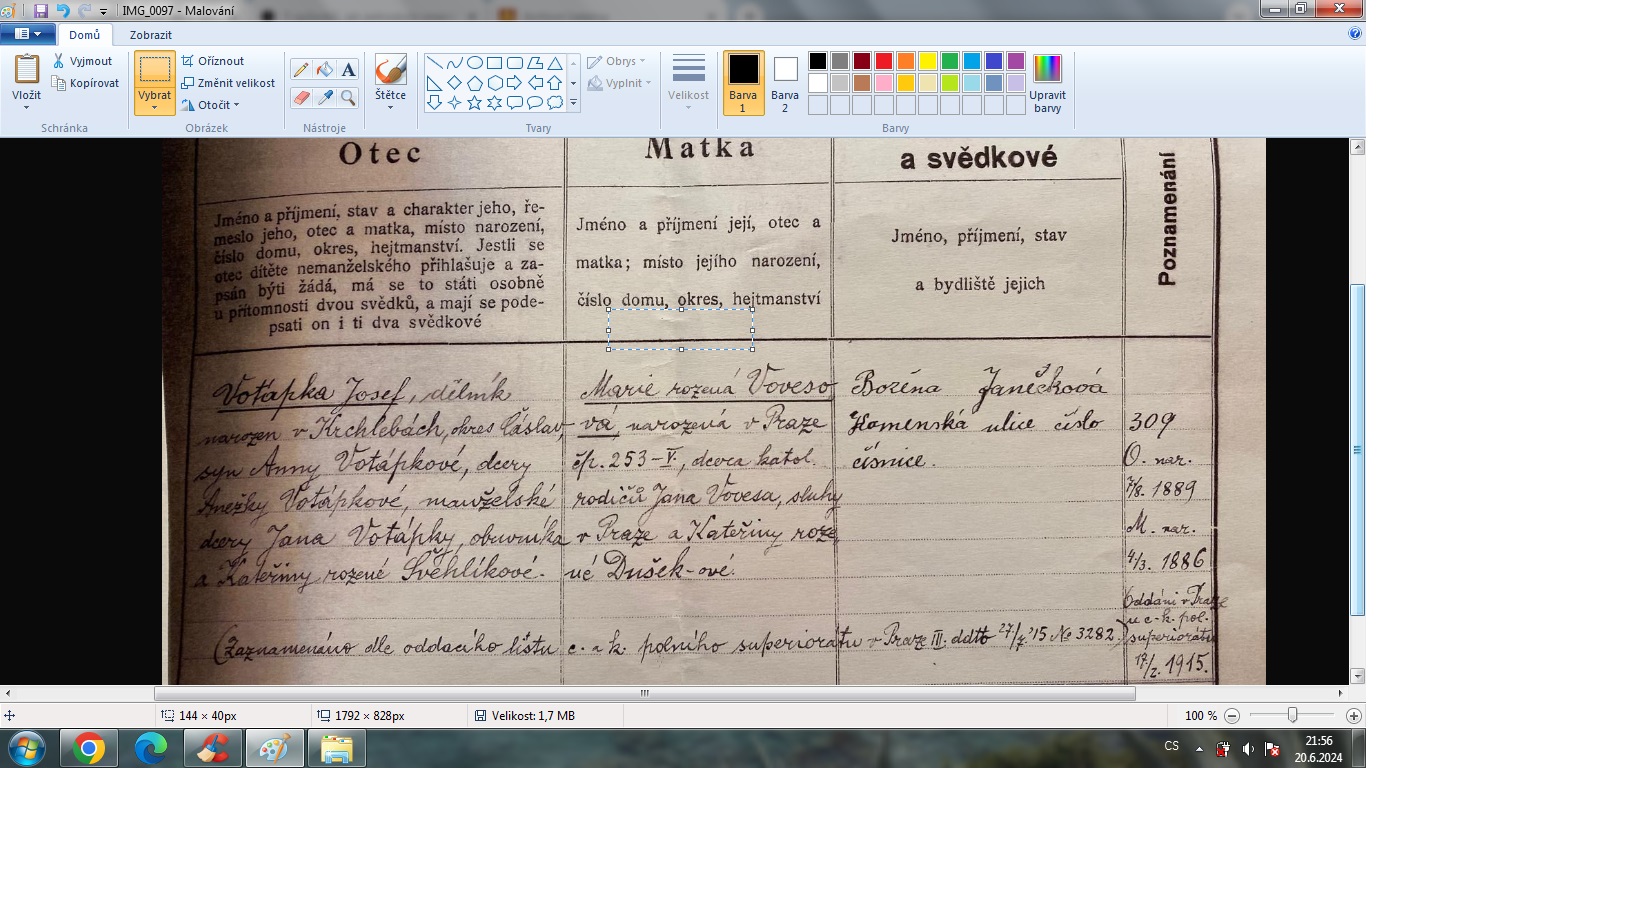 IMG_0097 - Malování
Domů
Zobrazit
Vložit
Vyjmout
Kopírovat
Schránka
Vybrat
Oříznout
Změnit velikost
Otočit
Obrázek
A
Nástroje
Štětce
Tvary
Obrys
Vyplnit
Velikost
Barva 1
Barva 2
Upravit barvy
Barvy
Otec
Jméno a příjmení, stav a charakter jeho, ře-
meslo jeho, otec a matka, místo narození,
číslo domu, okres, hejtmanství. Jestli se
otec dítěte nemanželského přihlašuje a za-
psán býti žádá, má se to státi osobně
u přítomnosti dvou svědků, a mají se pode-
psati on i ti dva svědkové
Matka
Jméno a příjmení její, otec a
matka; místo jejího narození,
číslo domu, okres, hejtmanství
a svědkové
Jméno, příjmení, stav
a bydliště jejich
Poznamenání
Votápka Josef, dělník
narozen v Krchlebách, okres Čáslav,
syn Anny Votápkové, dcery
Anežky Votápkové, manželské
dcery Jana Votápky, obuvníka
a Kateřiny rozené Švehlíkové.
Marie rozená Voveso
vá, narozená v Praze
čp. 253-V., dcera katol.
rodičů Jana Vovesa, sluhy
v Praze a Kateřiny roze
né Dušek-ové.
Božena Janečková
Kamenská ulice číslo
čísnice.
309
O. nar.
7/8. 1889
M. nar.
4/3. 1886
Oddáni v Praze
u c. k. pol.
superiorátu
17/7. 1915.
(Zaznamenáno dle oddacího listu c. a k. polního superiorátu v Praze III. ddto 27/7. '15 № 3282.)
144 × 40px
1792 × 828px
Velikost: 1,7 MB
100 %
CS
21:56
20.6.2024